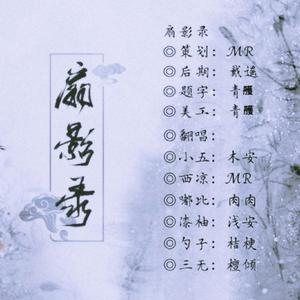 扇影录
扇影录
◎策划：MR
◎后期：戴遥
◎题字：青
◎美工：青
◎翻唱：
◎小五：木安
◎西凉：MR
◎嘟比：肉肉
◎漆柚：浅安
◎勺子：桔梗
◎三无：檀倾